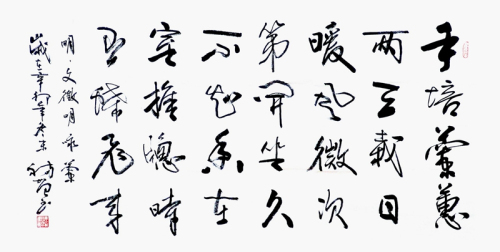 手培蘭蕙
两三栽日
暖風微次
第開坐久
不知香在
室推窗時
有蝶飛来
明·文徵明咏蘭
歲在辛丑年冬